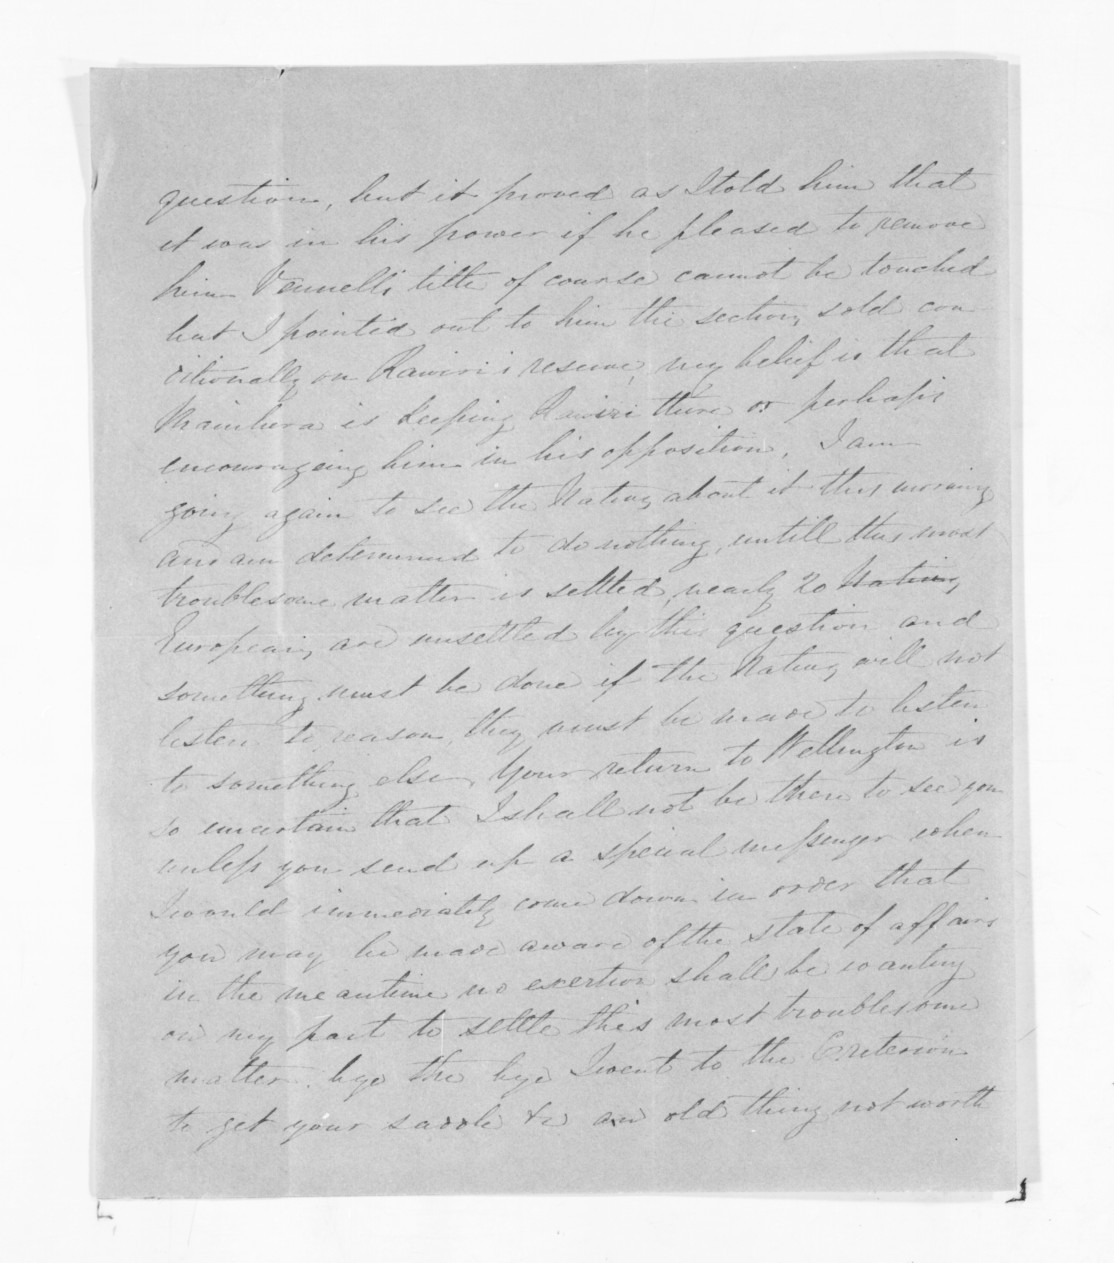 question, but it proved as I told him that
it was in his power if he pleased to remove
him Vennell's title of course cannot be touched
but I pointed out to him the sections sold con
ditionally on Rawiri's reserve, my belief is that
is keeping Rawiri there or perhaps
encourageing him in his opposition. I am
going again to see the Natives about it this morning
and am determined to do nothing untill this most
troublesome matter is settled, nearly 20 Natives
Europeans are unsettled by this question and
something must be done if the Natives will not
listen to reason they must be made to listen
to something else. Your return to Wellington is
so uncertain that I shall not be there to see you
unless you send up a special messenger when
I would immediately come down in order that
you may be made aware of the state of affairs
in the meantime no exertion shall be wanting
on my part to settle this most troublesome
matter. bye the bye I went to the Criterion
to get your saddle &c an old thing not worth